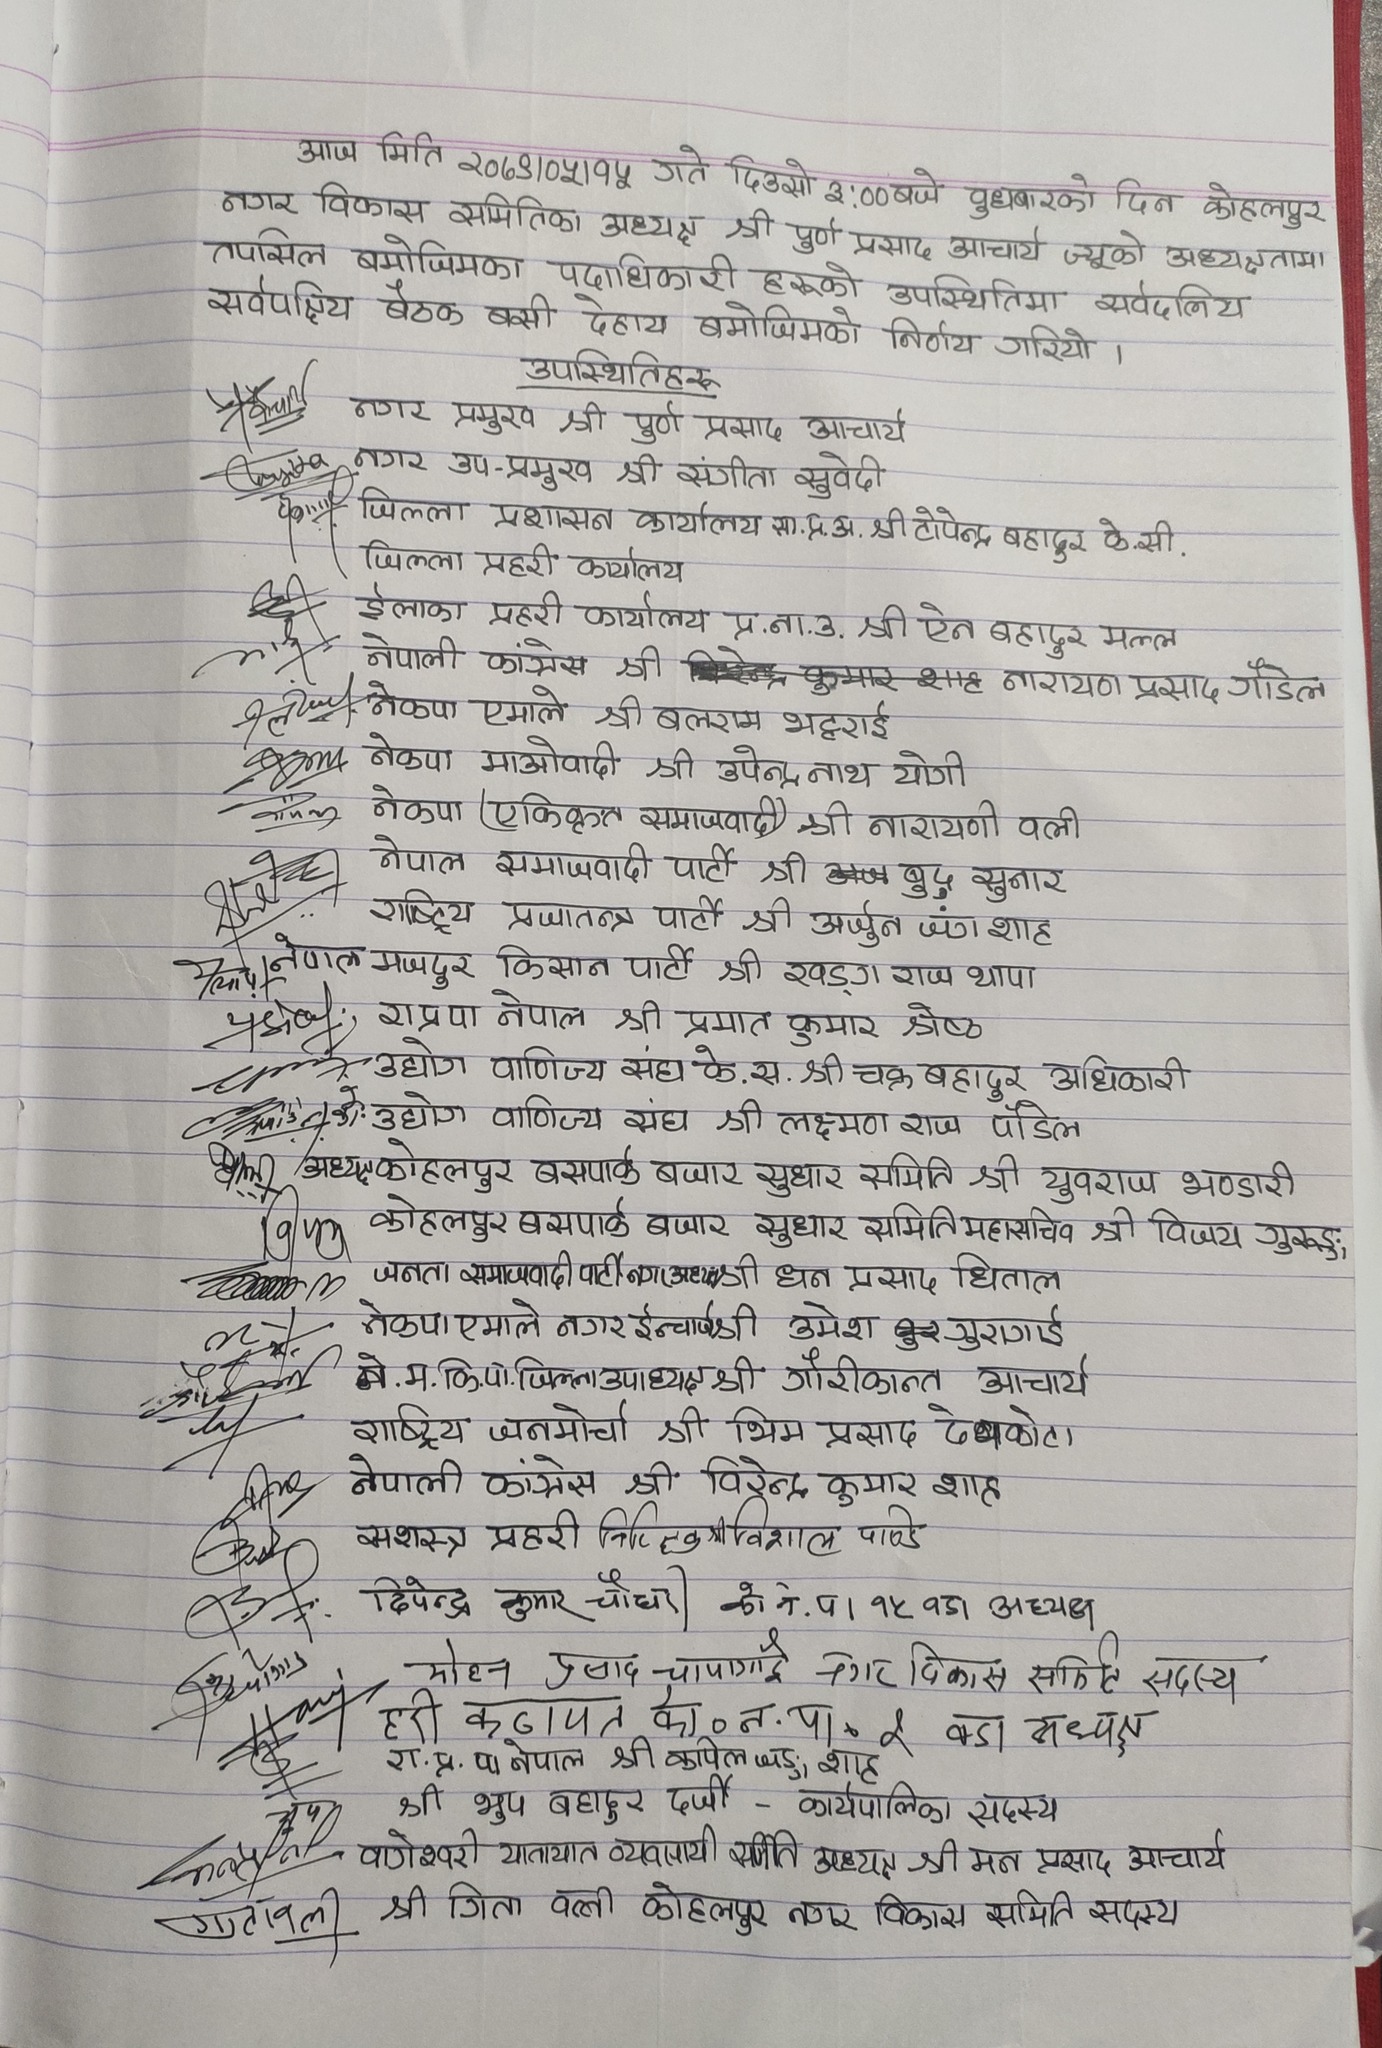 आज मिति २०७९।०५।१५ गते दिउसो ३:०० बजे वुधबारको दिन कोहलपुर
नगर विकास समितिका अध्यक्ष श्री पुर्ण प्रसाद आचार्य ज्यूको अध्यक्षतामा
तपसिल बमोजिमका पदाधिकारी हरूको उपस्थितिमा सर्वदलिय
सर्वपक्षिय बैठक बसी देहाय बमोजिमको निर्णय गरियो ।
उपस्थितिहरू
नगर प्रमुख श्री पुर्ण प्रसाद आचार्य
नगर उप-प्रमुख श्री संगीता सुवेदी
जिल्ला प्रशासन कार्यालय स.प्र.अ. श्री टोपेन्द्र बहादुर के.सी.
जिल्ला प्रहरी कार्यालय
ईलाका प्रहरी कार्यालय प्र.ना.उ. श्री ऐन बहादुर मल्ल
नेपाली कांग्रेस श्री विरेन्द्र कुमार शाह नारायण प्रसाद गौडेल
नेकपा एमाले श्री बलराम भट्टराई
नेकपा माओवादी श्री उपेन्द्र नाथ योगी
नेकपा (एकिकृत समाजवादी) श्री नारायणी वली
नेपाल समाजवादी पार्टी श्री बुद्ध सुनार
राष्ट्रिय प्रजातन्त्र पार्टी श्री अर्जुन जंग शाह
नेपाल मजदुर किसान पार्टी श्री खड्ग राज थापा
राप्रपा नेपाल श्री प्रमात कुमार श्रेष्ठ
उद्योग वाणिज्य संघ के.स. श्री चक्र बहादुर अधिकारी
उद्योग वाणिज्य संघ श्री लक्ष्मण राज पंडेल
अध्यक्ष कोहलपुर बसपार्क बजार सुधार समिति श्री युवराज भण्डारी
कोहलपुर बसपार्क बजार सुधार समिति महासचिव श्री विजय गुरूङ;
जनता समाजवादी पार्टी नगर अध्यक्ष श्री धन प्रसाद धिताल
नेकपा एमाले नगर ईन्चार्ज श्री उमेश गुरागाई
ने.म.कि.पा. जिल्ला उपाध्यक्ष श्री गौरीकान्त आचार्य
राष्ट्रिय जनमोर्चा श्री भिम प्रसाद देवकोटा
नेपाली कांग्रेस श्री विरेन्द्र कुमार शाह
सशस्त्र प्रहरी श्री विशाल पाण्डे
दिपेन्द्र कुमार चौधरी को.न.पा १५ वडा अध्यक्ष
मोहन प्रसाद चापागाई नगर विकास समिति सदस्य
हरी कढायत को.न.पा. २ वडा अध्यक्ष
रा.प्र.पा नेपाल श्री कपिल जङ्ग शाह
श्री भुप बहादुर दर्जी - कार्यपालिका सदस्य
वागेश्वरी यातायात व्यवसायी समिति अध्यक्ष श्री मन प्रसाद आचार्य
गीतावली श्री गिता वली कोहलपुर नगर विकास समिति सदस्य